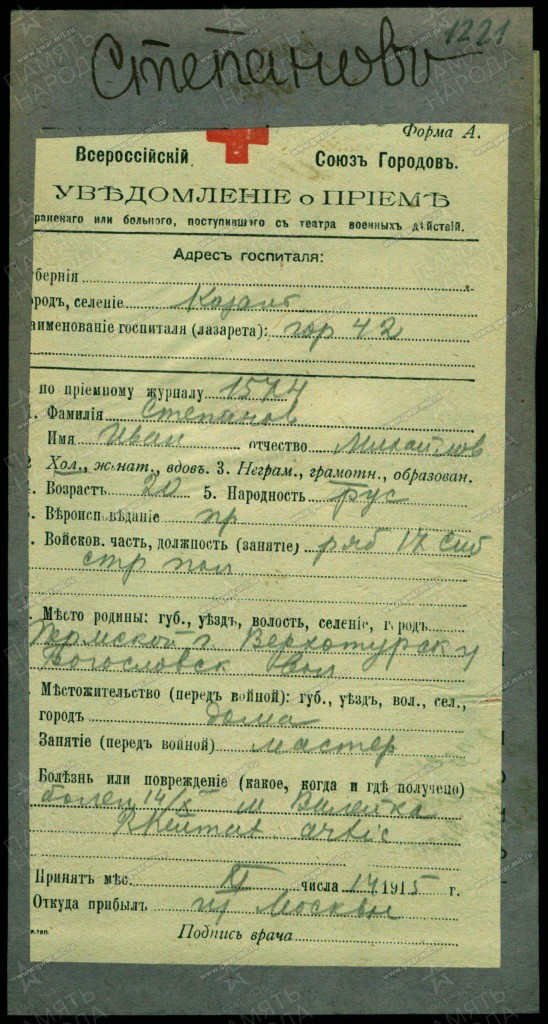 1221
Степановъ
Форма А.
Всероссійскій Союзъ Городовъ.
УВѢДОМЛЕНІЕ о ПРІЕМѢ
раненаго или больного, поступившаго съ театра военныхъ дѣйствій.
Адресъ госпиталя:
убернія
ородъ, селеніе Казань
аименованіе госпиталя (лазарета): гор 42
по пріемному журналу 1574
1. Фамилія Степанов
Имя Иван отчество Михайлов
2 Хол., женат., вдовъ. 3. Неграм., грамотн., образован.
. Возрастъ 20 5. Народность рус
. Вѣроисповѣданіе пр
. Войсков. часть, должность (занятіе) ряд 17 Сиб
стр пол
. Мѣсто родины: губ., уѣздъ, волость, селеніе, городъ
Пермской г. Верхотурск у
Богословск вол
. Мѣстожительство (передъ войной): губ., уѣздъ, вол., сел.,
городъ дома
Занятіе (передъ войной) мастер
Болѣзнь или поврежденіе (какое, когда и гдѣ получено)
болен 14/X м Вилейка
Rheumat
Принятъ мѣс. XI числа 14 1915 г.
Откуда прибылъ из Москвы
Подпись врача